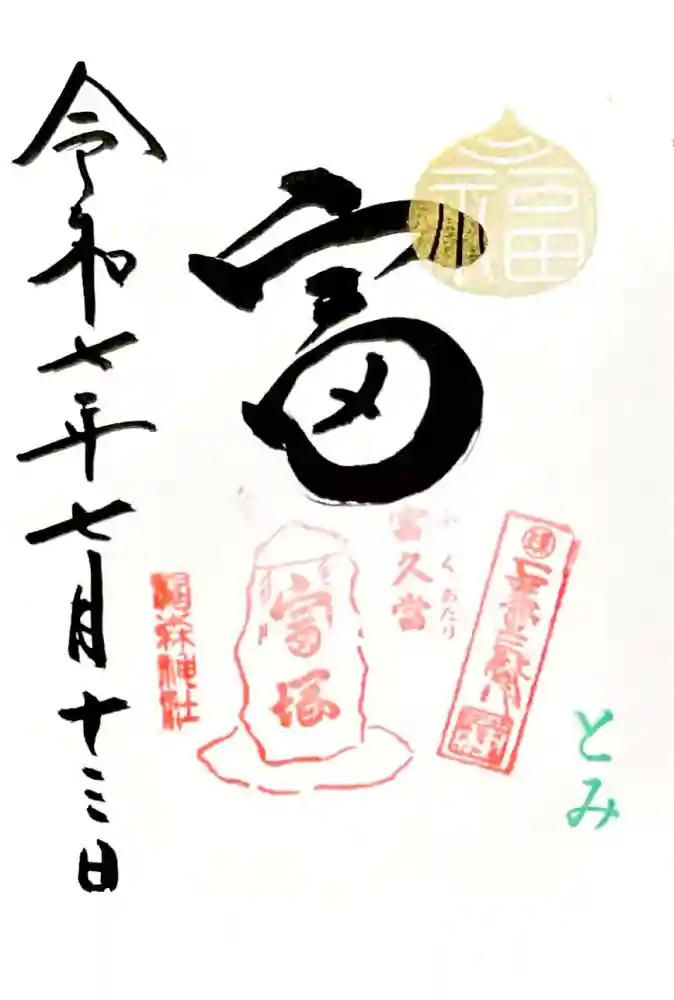 福
とみ
ふくあたり
富久當
富
富塚
椙森神社
令和七年七月十三日